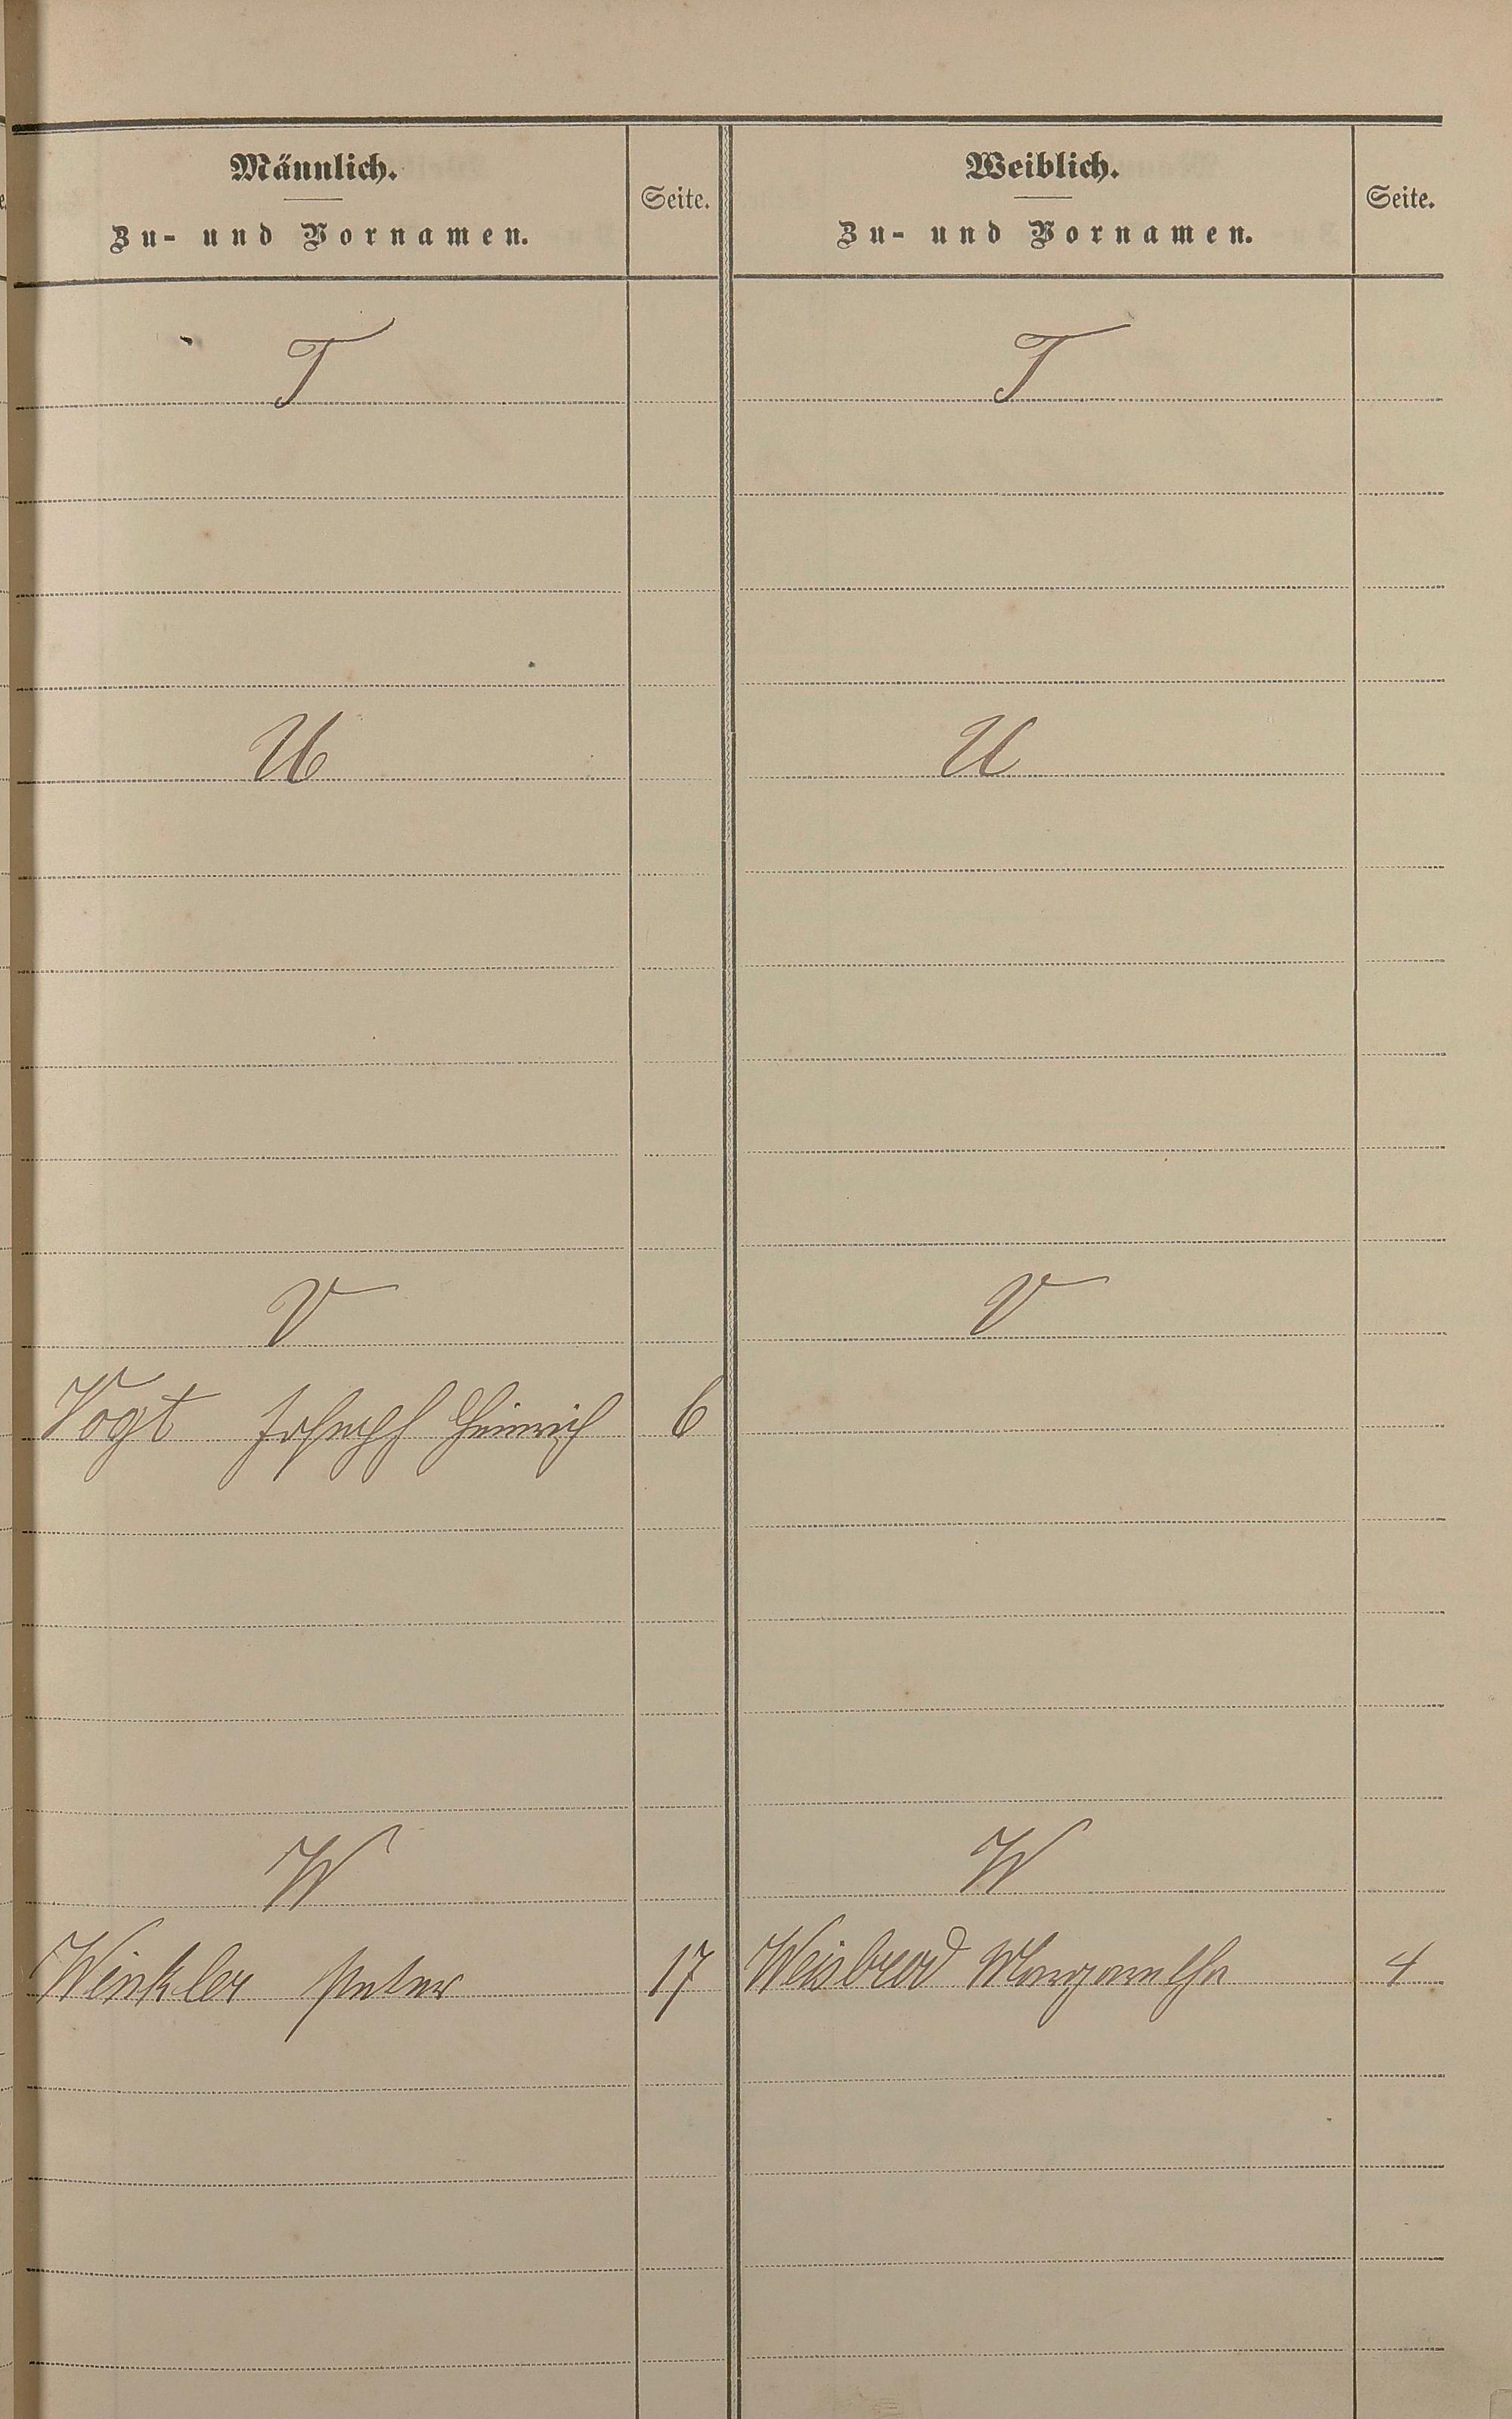 Männlich.
Zu- und Vornamen.
Seite.
Weiblich.
Zu- und Vornamen.
Seite.
T
T
U
U
V
V
Vogt Joseph Heinrich 6
W
W
Winkler Peter 17 Weisbrod Margaretha 4